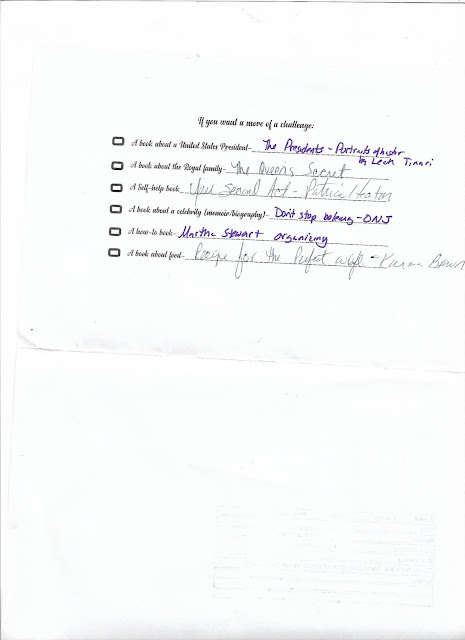 If you want a more of a challenge:
A book about a United States President- The Presidents - Portraits of histor
by Leah Tinari
A book about the Royal family- The Queen's Secret
A Self-help book- Your Second Act - Patricia Heaton
A book about a celebrity (memoir/biography)- Don't stop believing - ONJ
A how-to book- Martha Stewart organizing
A book about food- Recipe for the Perfect wife - Karma Brown